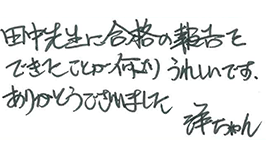 田中先生に合格の報告を
できたことが何よりうれしいです。
ありがとうございました
洋ちゃん